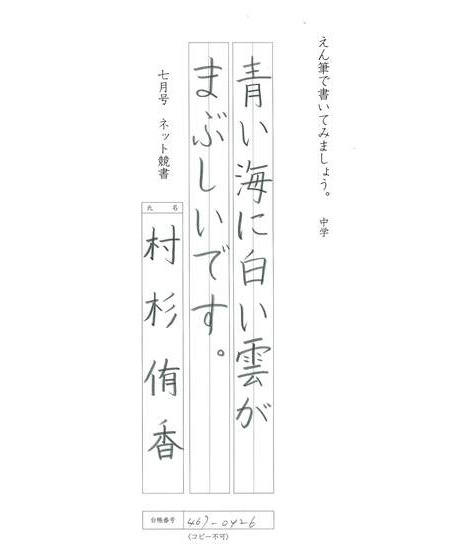 えん筆で書いてみましょう。 中学
青い海に白い雲が
まぶしいです。
七月号 ネット競書
氏名
村杉侑香
台帳番号 467-0426
(コピー不可)